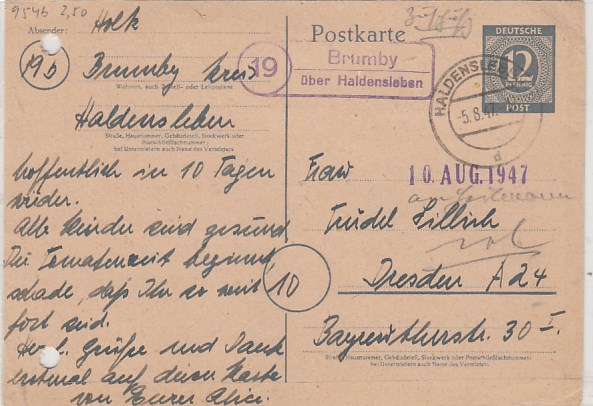 9546 2,50
Absender: Holk
19b
Brumby Kreis
Wohnort, auch Zustell- oder Leitpostamt
Haldensleben
Straße, Hausnummer, Gebäudeteil, Stockwerk oder
Postschließfachnummer;
bei Untermietern auch Name des Vermieters
hoffentlich in 10 Tagen
wieder.
Alle Kinder sind gesund
Die Tomatenzeit beginnt,
schade, daß Ihr so weit
fort seid.
Herzl. Grüße und Dank
erstmal auf deine Karte
von Eurer Alice.
Postkarte
19
Brumby
über Haldensleben
DEUTSCHE
12
PFENNIG
POST
HALDENSLEBEN
-5.8.47
d
10. AUG. 1947
Frau
Trudel Lillich
10
Dresden A 24
Bayreutherstr. 30 I.
Straße, Hausnummer, Gebäudeteil, Stockwerk oder Postschließfachnummer;
bei Untermietern auch Name des Vermieters